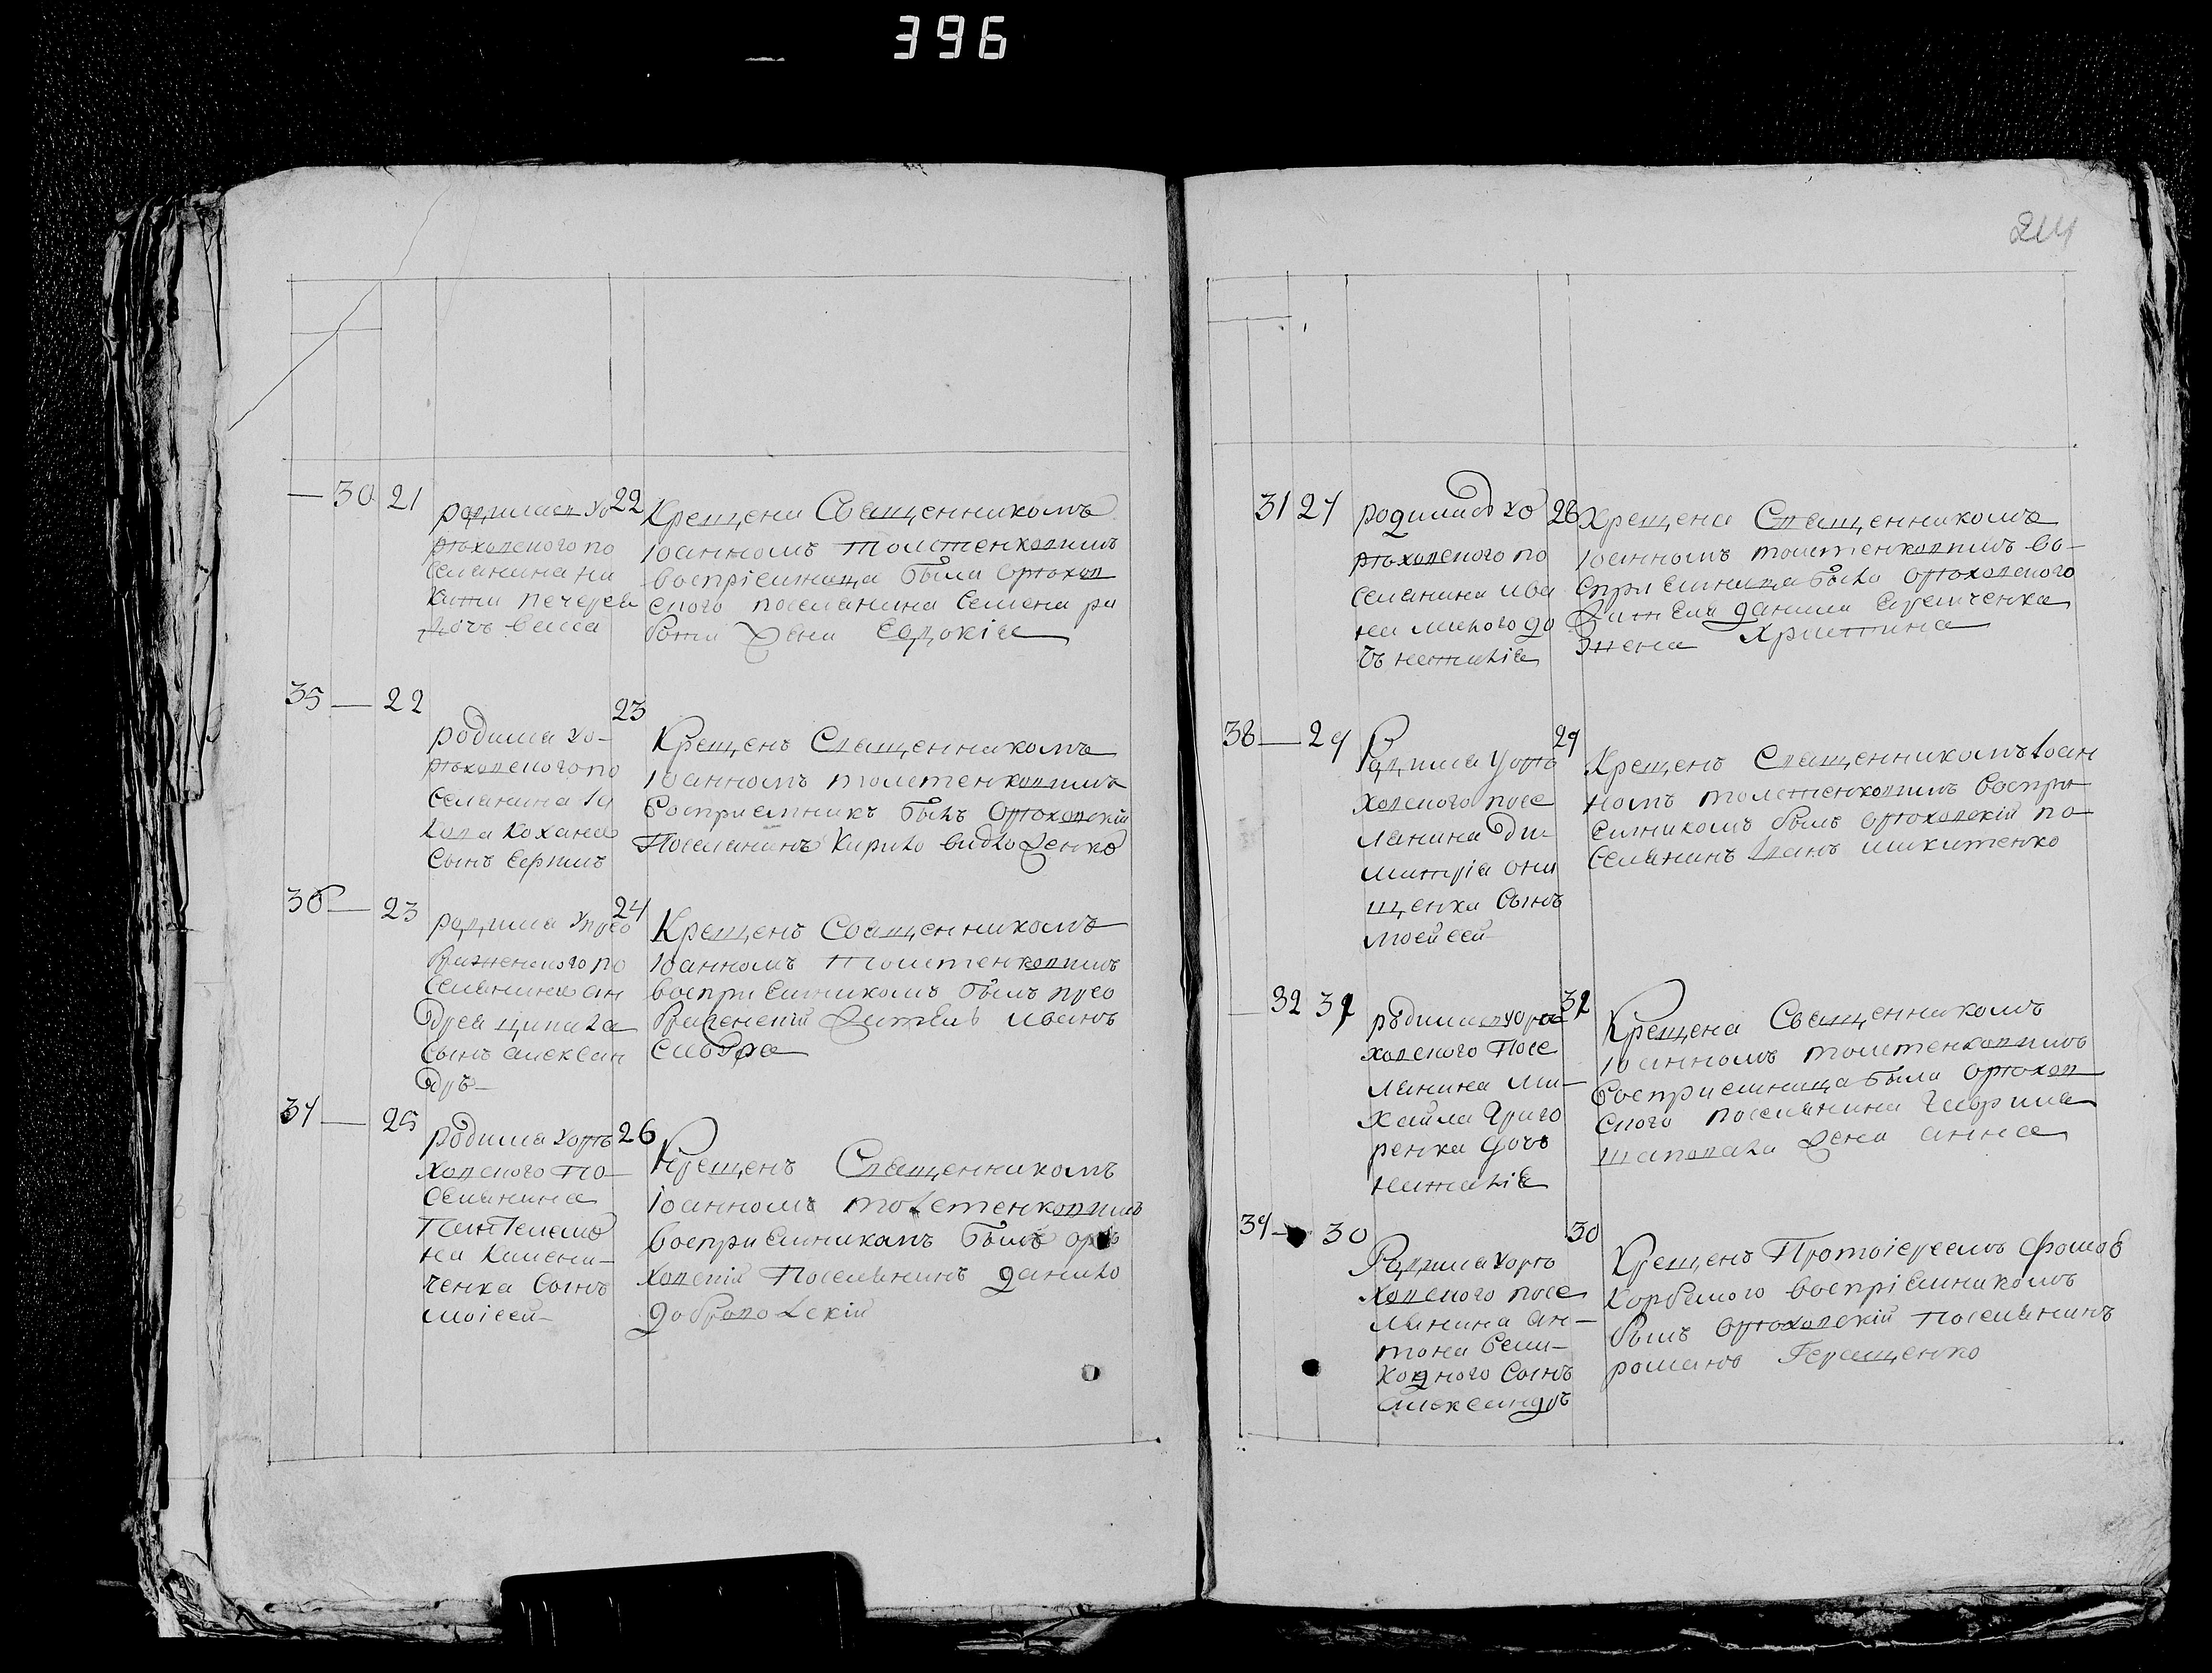 396
214
— 30 21
родилась у о
рѣховского по
селанина ни
киты печерев
дочь васса
22
Крещена Священникомъ
Іоанномъ Толстенковимъ
воспріемница была орѣхов
ского поселанина Семена ра
Жена Евдокіа
35 — 22
родился у о-
рѣховского по
селанина Іа
кова Кохана
сынъ Ефимъ
23
Крещенъ Священникомъ
Іоанномъ толстенковимъ
воспріемникъ былъ Орѣховскій
Поселанинъ Кирило
36 — 23
родился у прео
браженского по
селанина ан
дреа щипала
сынъ алексан
дръ —
24
Крещенъ Священникомъ
Іоанномъ Толстенковимъ
восприемникомъ былъ прео
браженскій Житель иванъ
37 — 25
родился у орѣ
ховского по—
селанина
Пантелемо
на Камени—
ченка сынъ
моісей —
26
Крещенъ Священникомъ
Іоанномъ толстенковимъ
восприемникомъ былъ орѣ
ховскій Поселанинъ данило
доброволскій
31 27
родилась у о
рѣховского по
селанина ива
на милого до
чь наталіа
28
Крещена Священникомъ
Іоанномъ толстенковимъ во-
сприемница была орѣховского
Жителя данила Яремченка
жена Христина
38 — 29
Родился у орѣ
ховского посе
ланина Ди
митріа они
щенка сынъ
моейсей —
29
Крещенъ Священникомъ Іоан
номъ толстенковимъ воспри
емникомъ былъ орѣховскій по-
селанинъ Іванъ микитенко
— 32 31
родилась у орѣ
ховского посе
ланина Ми-
хайла Григо
ренка дочь
наталіа
31
Крещена Священникомъ
Іоанномъ толстенковимъ
восприемница была орѣхов
ского поселанина гаврила
шаповала жена анна
39 — 30
Родился у орѣ
ховского посе
ланина ан—
тона Сели-
ходного сынъ
александръ
30
Крещенъ Протоіереемъ Фомою
Корбамого воспріемникомъ
былъ Орѣховскій Поселанинъ
романъ Геращенко